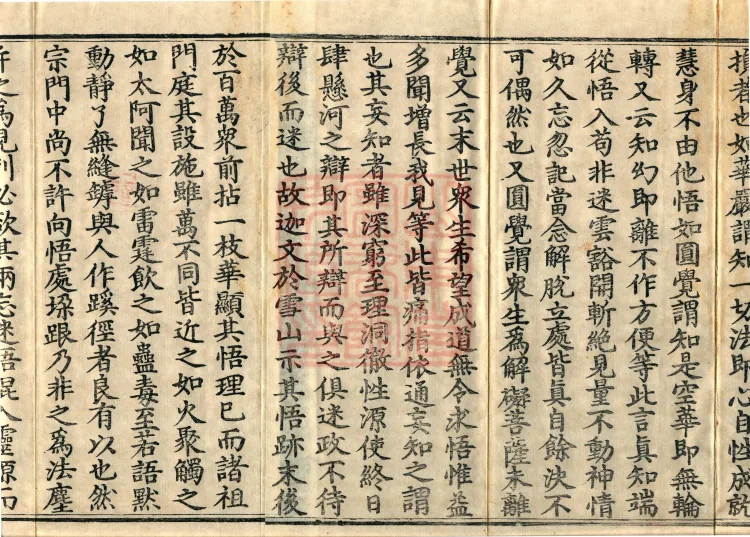 損者也如華嚴謂知一切法即心自性成就
慧身不由他悟如圓覺謂知是空華即無輪
轉又云知幻即離不作方便等此言真知端
從悟入苟非迷雲豁開斬絕見量不動神情
如久忘忽記當念解脫立處皆真自餘決不
可偶然也又圓覺謂眾生為解礙菩薩未離
覺又云末世眾生希望成道無令求悟惟益
多聞增長我見等此皆痛指依通妄知之謂
也其妄知者雖深窮至理洞徹性源使終日
肆懸河之辯即其所辯而與之俱迷政不待
辯後而迷也故迦文於雪山示其悟跡末後
於百萬眾前拈一枝華顯其悟理已而諸祖
門庭其設施雖萬不同皆近之如火聚觸之
如太阿聞之如雷霆飲之如蠱毒至若語默
動靜了無縫罅與人作蹊徑者良有以也然
宗門中尚不許向悟處垜跟乃非之為法塵
許之為見刺必欲其兩忘迷悟混入靈源而